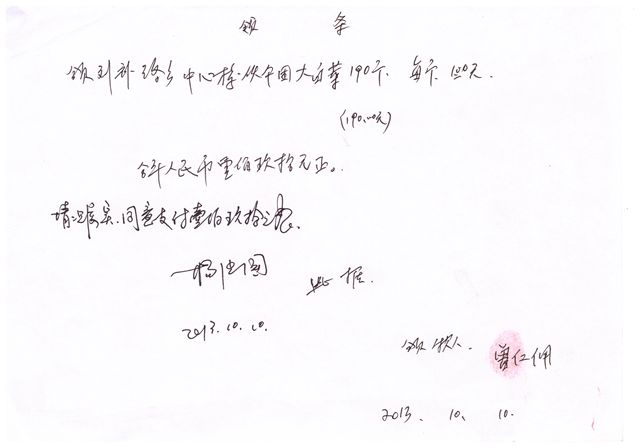 领 条
领到补路乡中心校伙中国大白菜190斤. 每斤1.00元.
(190.00元)
合计人民币壹佰玖拾元正。
情况属实.同意支付壹佰玖拾元
此据.
2013.10.10.
领款人. 曾仁佣
2013. 10. 10.